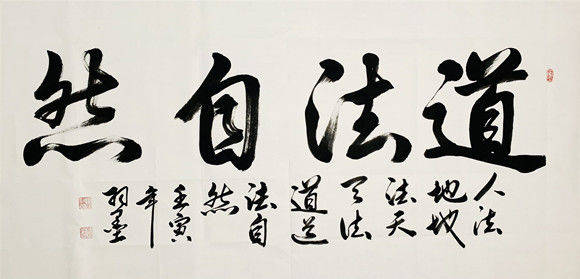 道法自然
人法
地地
法天
天法
道道
法自
然
壬寅
年
羽墨